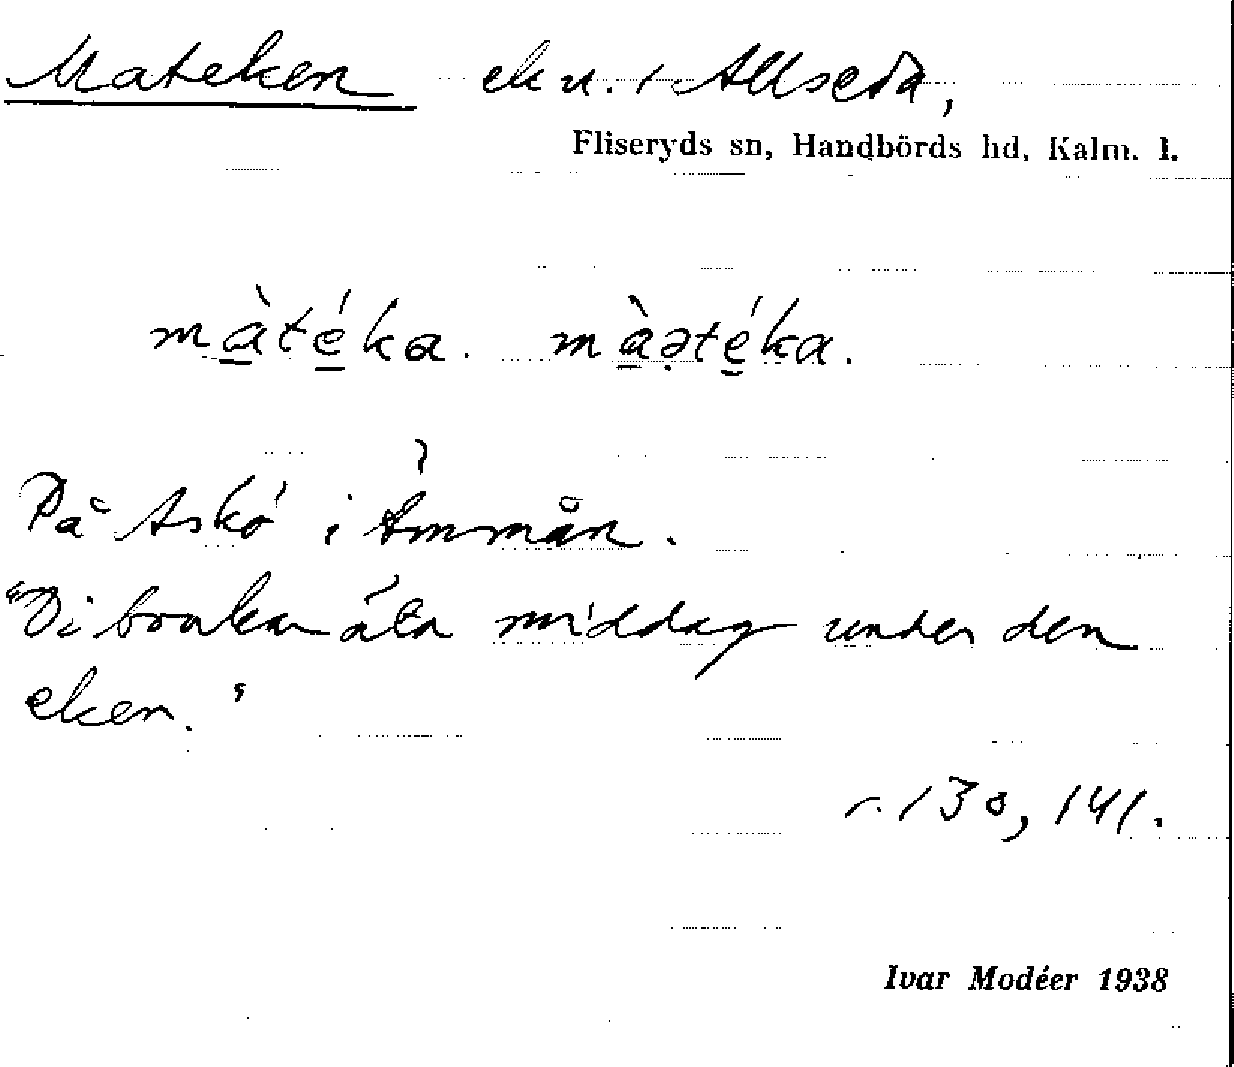 Mateken ek n. i Allseda,
Fliseryds sn, Handbörds hd, Kalm. l.
màtéka. màətéka.
På Askö i Ämmån.
"Di bruka äta middag under den
eken."
r. 130, 141.
Ivar Modéer 1938